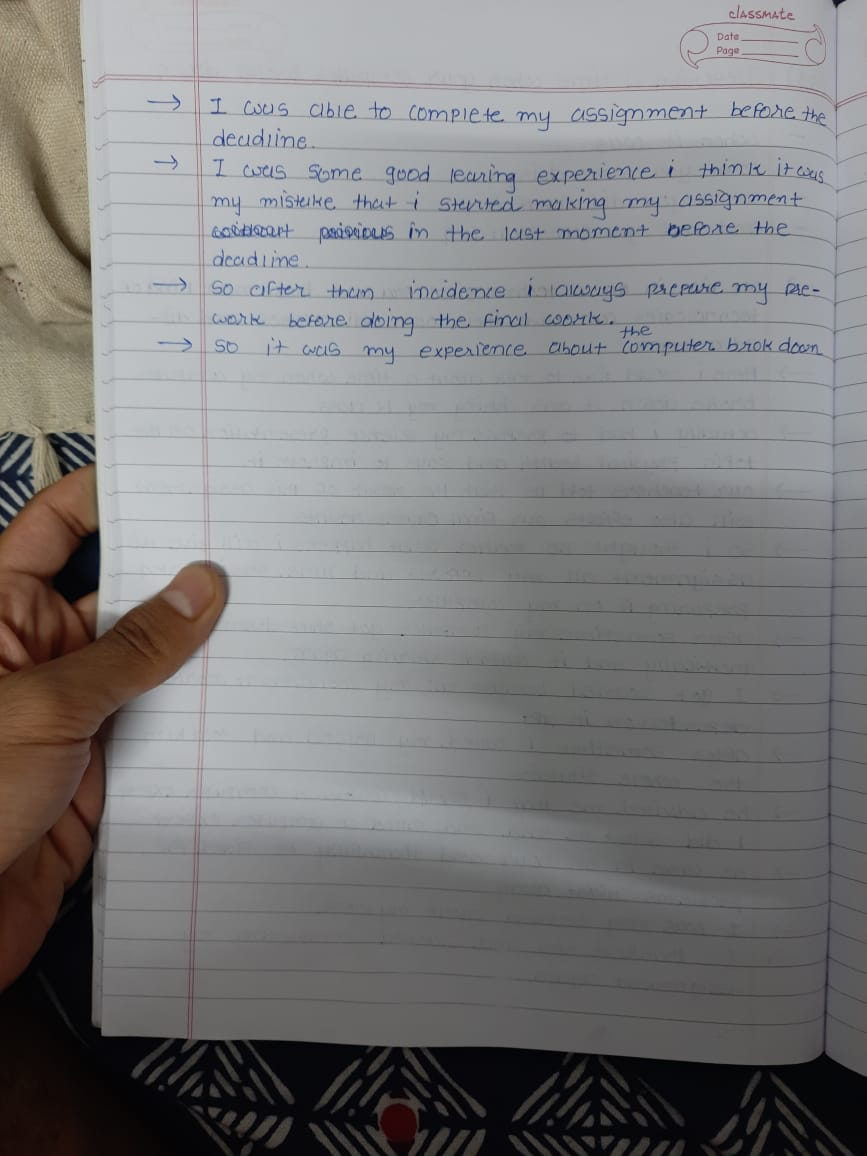 classmate
Date
Page
→ I was able to complete my assignment before the
deadline.
→ I was some good learing experience i think it was
my mistake that i started making my assignment
in the last moment before the
deadline.
→ so after them incidence i always prepare my pre-
work before doing the final work.
→ so it was my experience about the computer brok down